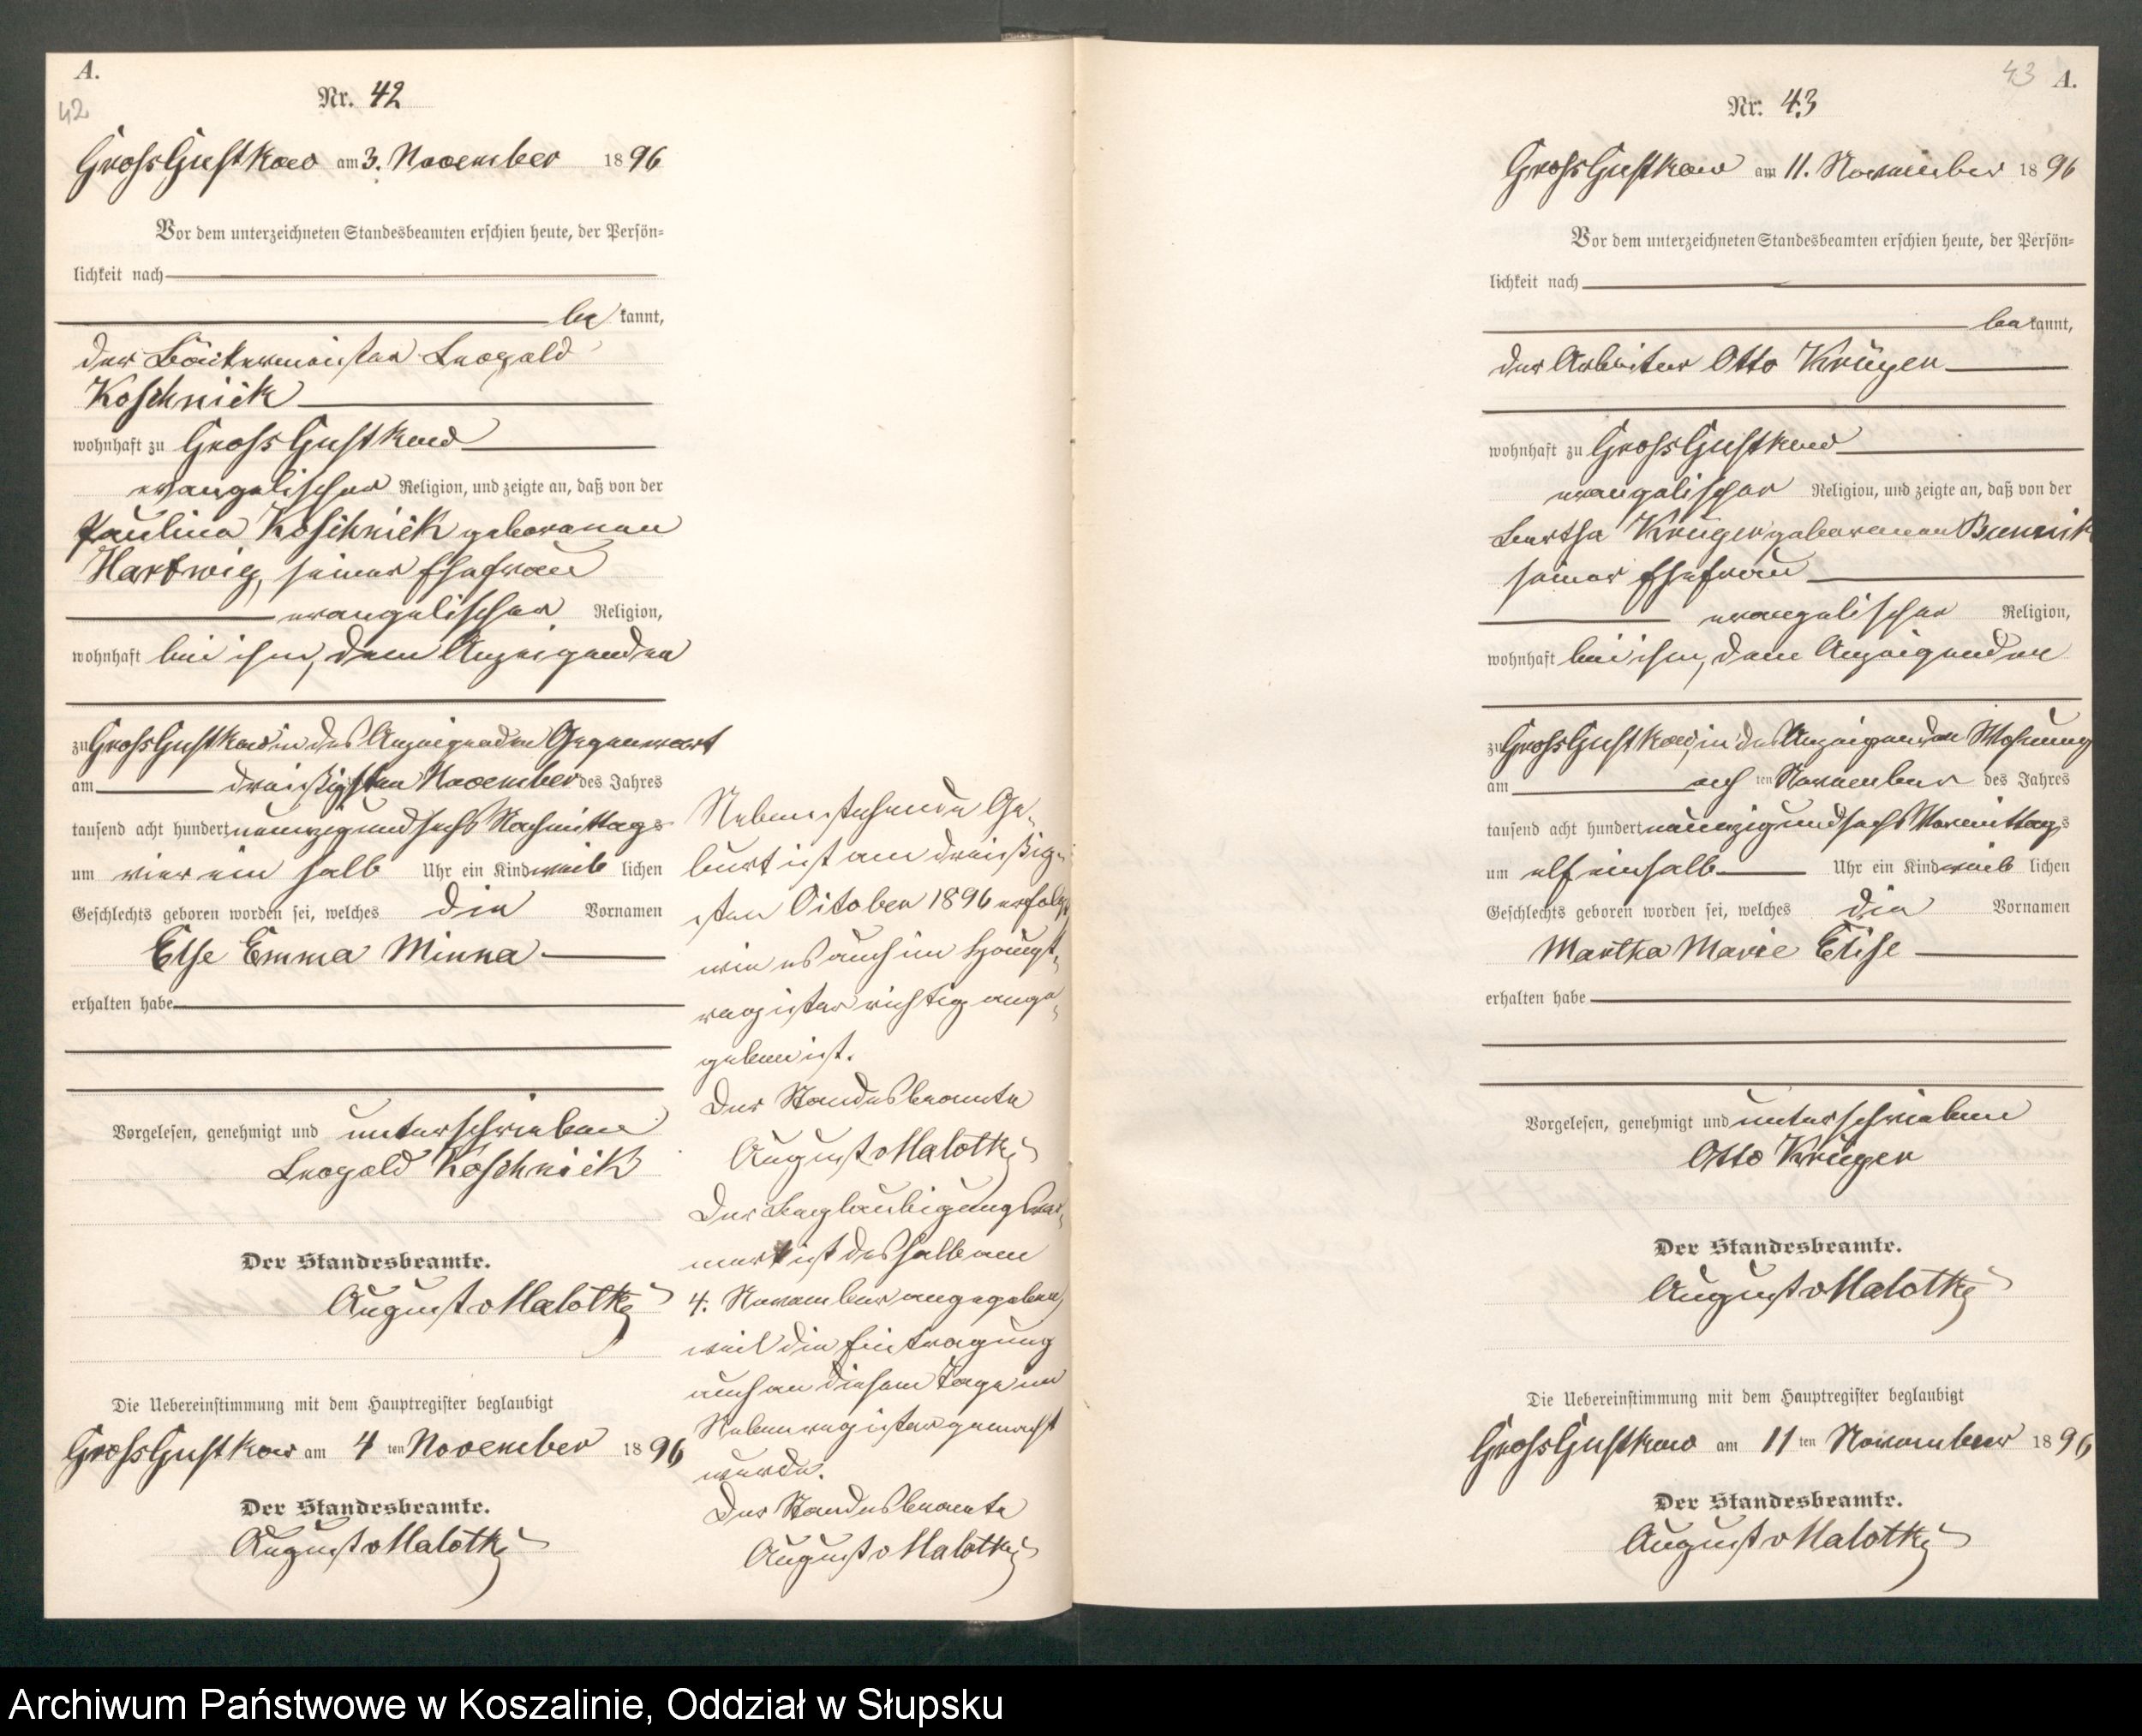 A.
42
Nr. 42
Gross Gustkow am 3. November 1896
Vor dem unterzeichneten Standesbeamten erschien heute, der Persön-
lichkeit nach
be kannt,
der Bäckermeister Leopold
Koschnick
wohnhaft zu Gross Gustkow
evangelischer Religion, und zeigte an, daß von der
Pauline Koschnick geborenen
Hartwig, seiner Ehefrau
evangelischer Religion,
wohnhaft bei ihm, dem Anzeigenden
zu Gross Gustkow in des Anzeigenden Gegenwart
am dreißigsten November des Jahres
tausend acht hundert neunzig und sechs Nachmittags
um vier ein halb Uhr ein Kind weib lichen
Geschlechts geboren worden sei, welches die Vornamen
Else Emma Minna
erhalten habe
Vorgelesen, genehmigt und unterschrieben
Leopold Koschnick
Der Standesbeamte.
August v Malottki
Die Uebereinstimmung mit dem Hauptregister beglaubigt
Gross Gustkow am 4 ten November 1896
Der Standesbeamte.
August v Malottki
Nebenstehende Ge-
burt ist am dreißig-
sten October 1896 erfolgt
wie es auch im Haupt-
register richtig ange-
geben ist.
Der Standesbeamte
August v Malottki
Der Beglaubigungsver-
merk ist deshalb am
4. November angegeben,
weil die Eintragung
auch an diesem Tage im
Nebenregister gemacht
wurde.
Der Standesbeamte
August v Malottki
43 A.
Nr. 43
Gross Gustkow am 11. November 1896
Vor dem unterzeichneten Standesbeamten erschien heute, der Persön-
lichkeit nach
be kannt,
der Arbeiter Otto Krüger
wohnhaft zu Gross Gustkow
evangelischer Religion, und zeigte an, daß von der
Bertha Krüger geborenen
seiner Ehefrau
evangelischer Religion,
wohnhaft bei ihm, dem Anzeigenden
zu Gross Gustkow, in des Anzeigenden Wohnung
am ten November des Jahres
tausend acht hundert neunzig und sechs Vormittags
um elf einhalb Uhr ein Kind weib lichen
Geschlechts geboren worden sei, welches die Vornamen
Martha Marie Elise
erhalten habe
Vorgelesen, genehmigt und unterschrieben
Otto Krüger
Der Standesbeamte.
August v Malottki
Die Uebereinstimmung mit dem Hauptregister beglaubigt
Gross Gustkow am 11 ten November 1896
Der Standesbeamte.
August v Malottki
Archiwum Państwowe w Koszalinie, Oddział w Słupsku